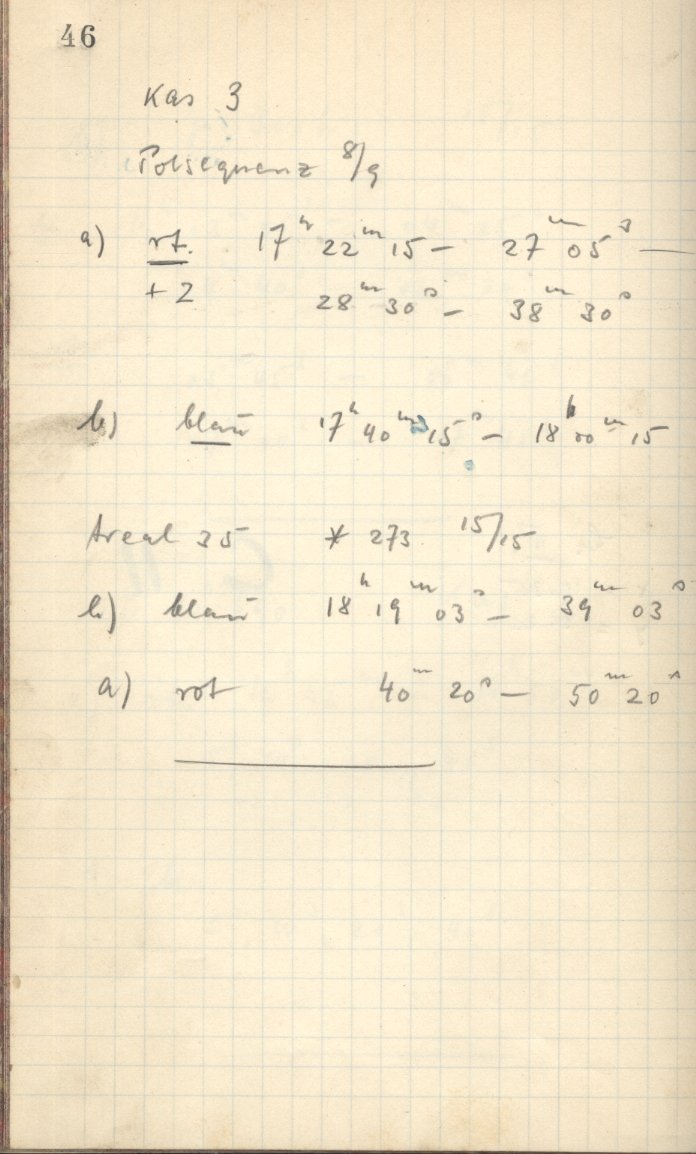 46
Kas 3
Polsequenz 8/9
a) rt. 17ʰ 22ᵐ 15 — 27ᵐ 05ˢ —
+2 28ᵐ 30ˢ — 38ᵐ 30ˢ
b) blau 17ʰ 40ᵐ 15ˢ — 18ʰ 00ᵐ 15
Areal 35 * 273 15/15
b) blau 18ʰ 19ᵐ 03ˢ — 39ᵐ 03ˢ
a) rot 40ᵐ 20ˢ — 50ᵐ 20ˢ